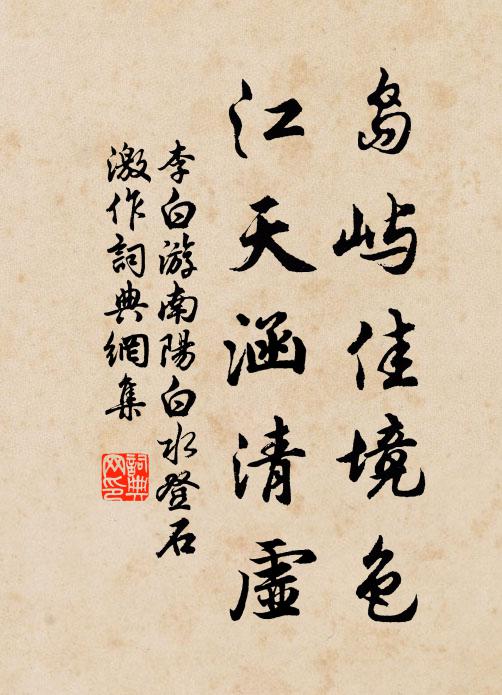 島嶼佳境色
江天涵清虛
李白游南陽白水登石
激作詞典網集
詞典
网印